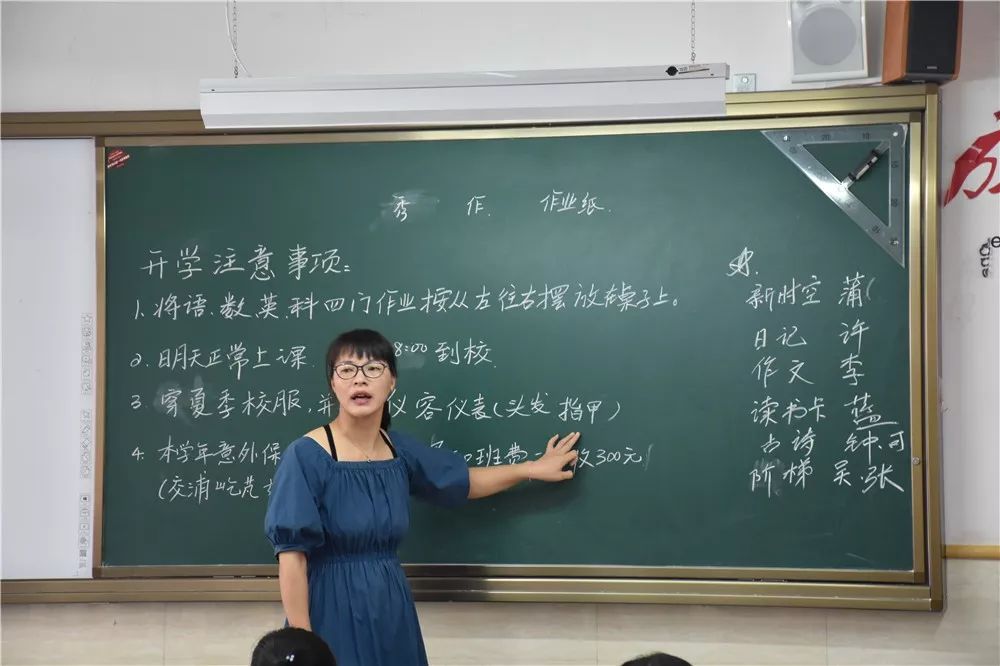 秀 作 作业纸
开学注意事项:
1. 将语、数、英、科四门作业按从左往右摆放在桌子上。
2. 明天正常上课 8:00到校
3. 穿夏季校服,并 仪容仪表(头发 指甲)
4. 本学年意外保 和班费 收300元
(交浦屹
新时空 蒲
日记 许
作文 李
读书卡 蓝
古诗 钟 可
阶梯 吴 张
20 10